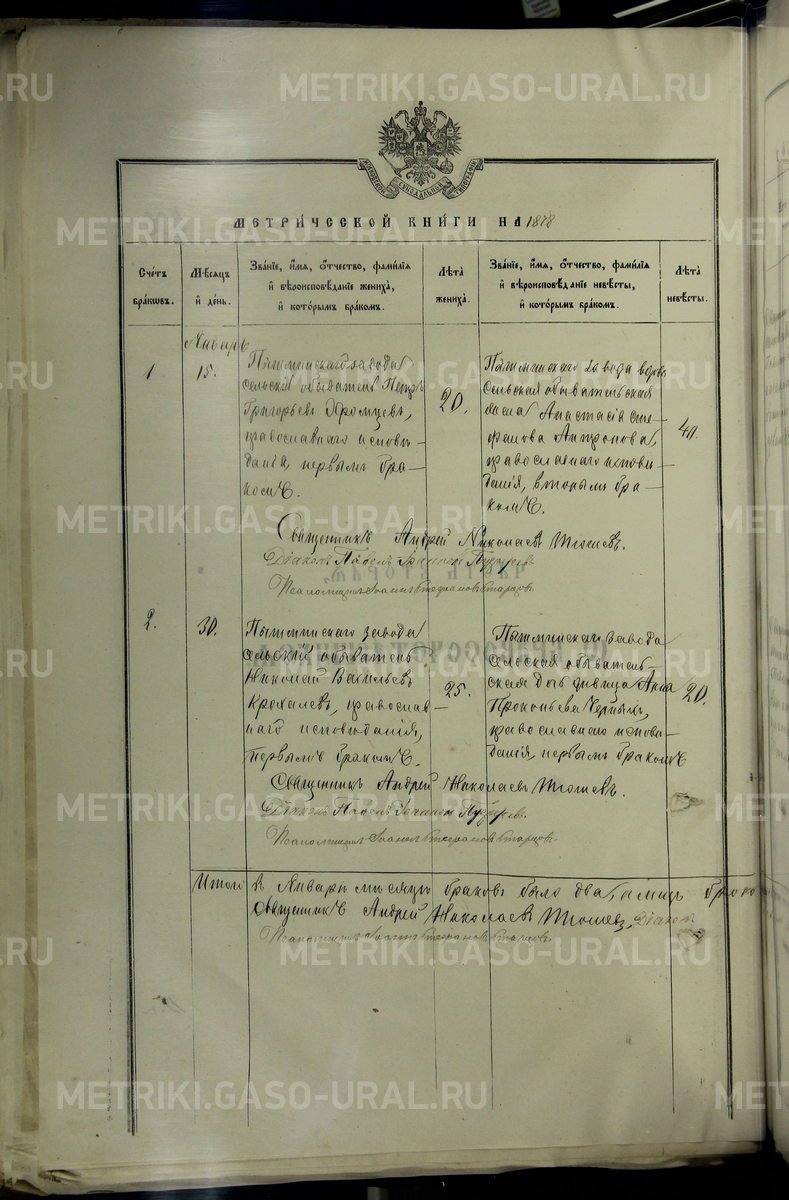 METRIKI.GASO-URAL.RU
МЕТРИ́ЧЕСКОЙ КНИ́ГИ НА 1878
Сче́тъ бра́ковъ.
Мѣсяцъ и҆ де́нь.
Зва́нїе, и҆́мя, ѻ҆́тчество, фами́лїя и҆ вѣроисповѣ́данїе жениха̀, и҆ кото́рымъ бра́комъ.
Лѣта̀ жениха̀.
Зва́нїе, и҆́мя, ѻ҆́тчество, фами́лїя и҆ вѣроисповѣ́данїе невѣ́сты, и҆ кото́рымъ бра́комъ.
Лѣта̀ невѣ́сты.
Январь
1
15.
Пышминскаго завода
сельскій обыватель Петръ
Григорьевъ
православнаго исповѣ-
данія, первымъ бра-
комъ.
20.
Пышминскаго завода вдова
сельская обывательская
Анастасія Сте-
фанова
православнаго исповѣ-
данія, вторымъ бра-
комъ.
Священникъ Андрей Николаевъ
Діаконъ Павелъ Іоанновъ
Псаломщикъ Іоаннъ Стефановъ Старцовъ.
2.
30.
Пышминскаго завода
сельскій обыватель
Николай Васильевъ
Крохалевъ, православ-
наго исповѣданія,
первымъ бракомъ.
25.
Пышминскаго завода
сельская обыватель-
ская дочь дѣвица Анна
Прокопьева Черныхъ,
православнаго исповѣ-
данія, первымъ бракомъ
20.
Священникъ Андрей Николаевъ
Діаконъ Павелъ Іоанновъ
Псаломщикъ Іоаннъ Стефановъ Старцовъ.
Итого въ Январѣ мѣсяцѣ браковъ было два,
Священникъ Андрей Николаевъ Діаконъ
Псаломщикъ Іоаннъ Стефановъ Старцовъ.